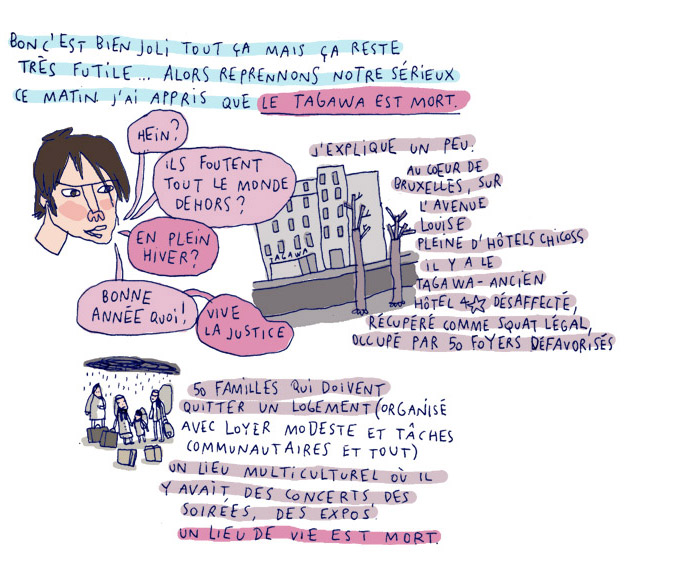 BON C'EST BIEN JOLI TOUT ÇA MAIS ÇA RESTE
TRÈS FUTILE... ALORS REPRENNONS NOTRE SÉRIEUX
CE MATIN J'AI APPRIS QUE LE TAGAWA EST MORT.
HEIN?
ILS FOUTENT
TOUT LE MONDE
DEHORS?
EN PLEIN
HIVER?
BONNE
ANNÉE QUOI!
VIVE
LA JUSTICE
TAGAWA
J'EXPLIQUE UN PEU:
AU COEUR DE
BRUXELLES, SUR
L'AVENUE
LOUISE
PLEINE D'HÔTELS CHICOSS
IL Y A LE
TAGAWA - ANCIEN
HÔTEL 4☆ DÉSAFFECTÉ,
RÉCUPÉRÉ COMME SQUAT LÉGAL,
OCCUPÉ PAR 50 FOYERS DEFAVORISÉS
50 FAMILLES QUI DOIVENT
QUITTER UN LOGEMENT (ORGANISÉ
AVEC LOYER MODESTE ET TÂCHES
COMMUNAUTAIRES ET TOUT)
UN LIEU MULTICULTUREL OÙ IL
Y AVAIT DES CONCERTS DES
SOIRÉES, DES EXPOS
UN LIEU DE VIE EST MORT.